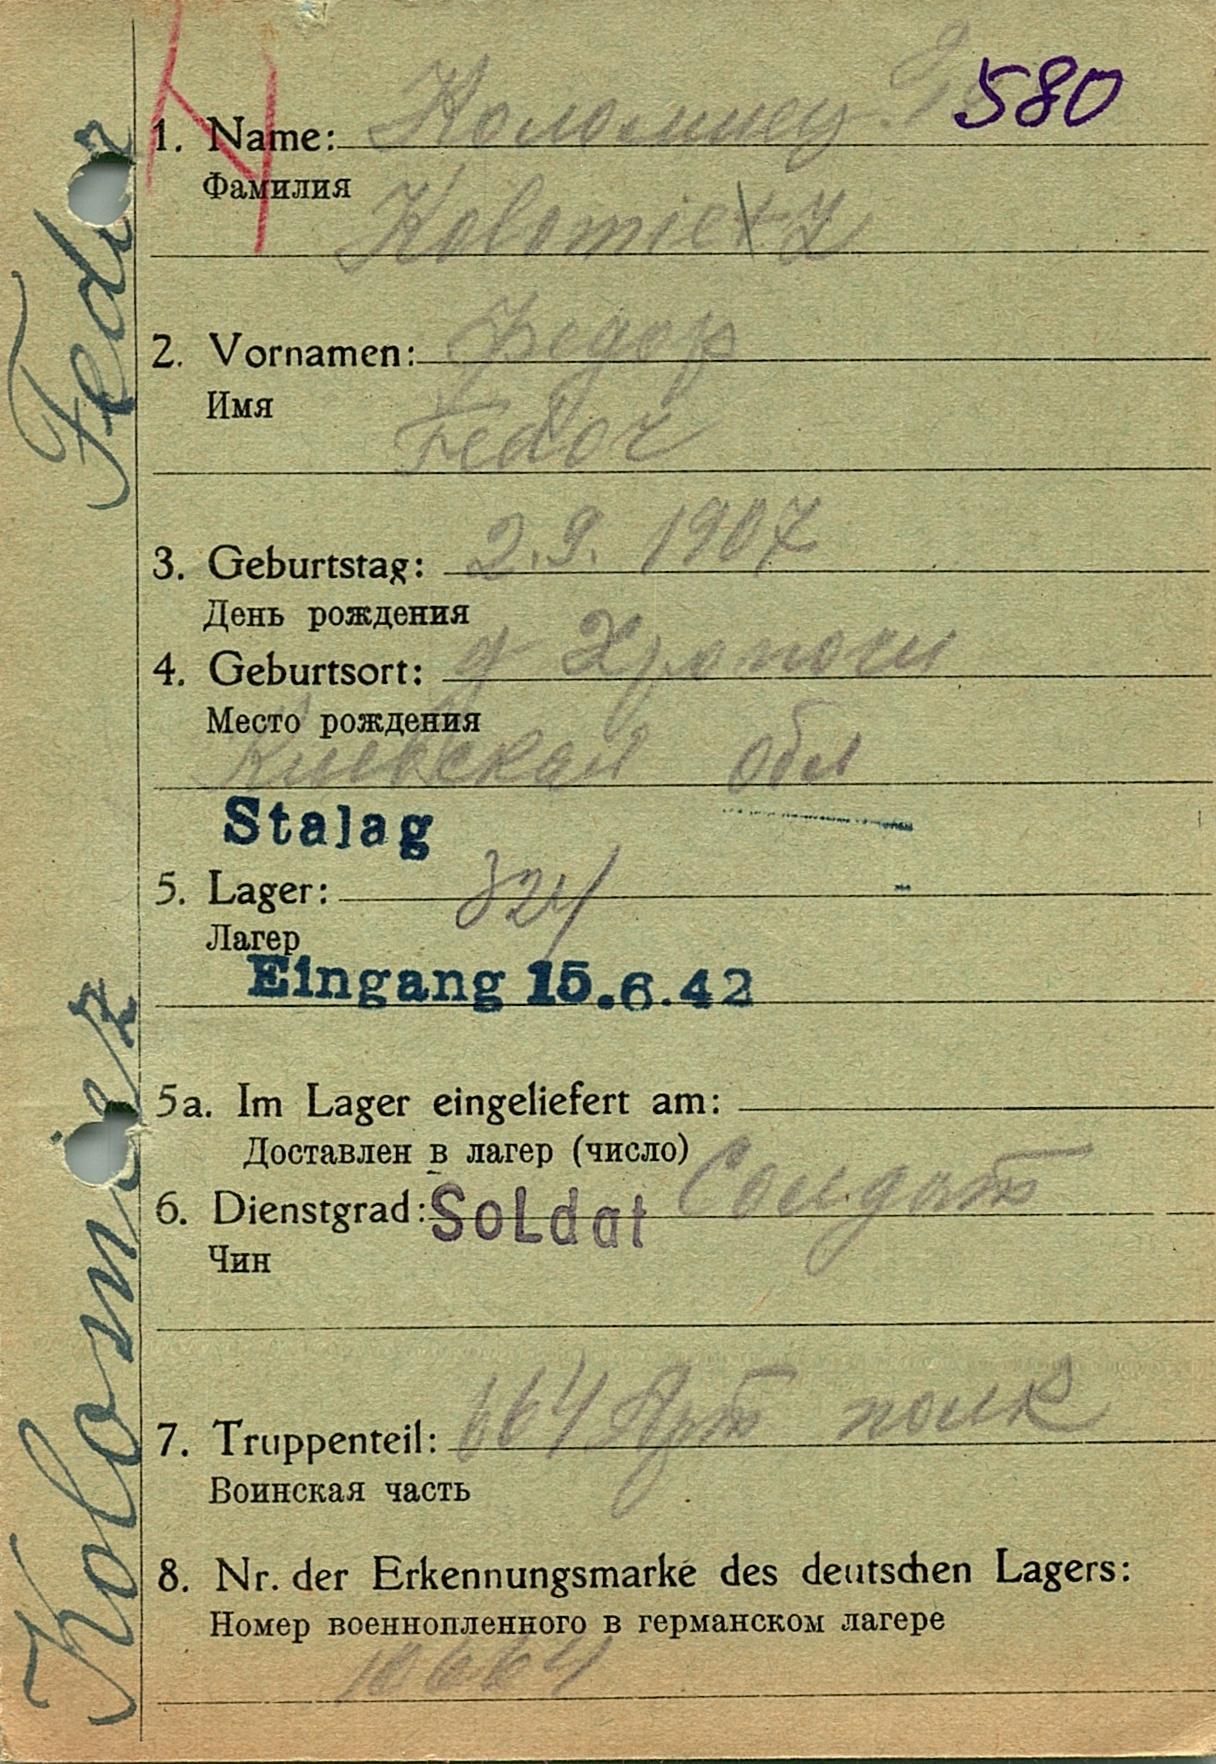 580
1. Name: Коломиец
Фамилия
Kolomietz
2. Vornamen: Федор
Имя
Fedor
3. Geburtstag: 2.9.1907
День рождения
4. Geburtsort: д
Место рождения
Киевская обл
Stalag
5. Lager: 324
Лагер
Eingang 15.6.42
5a. Im Lager eingeliefert am:
Доставлен в лагер (число)
6. Dienstgrad: Soldat Солдат
Чин
7. Truppenteil: 664 Арт полк
Воинская часть
8. Nr. der Erkennungsmarke des deutschen Lagers:
Номер военнопленного в германском лагере
10664
Kolomietz Fedor